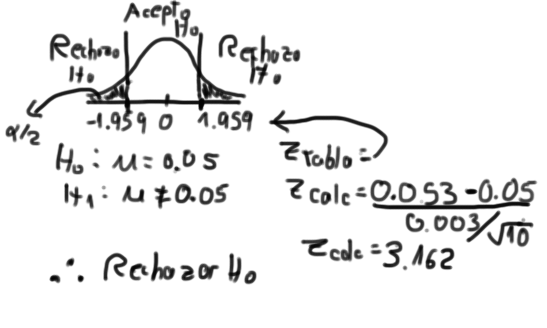 Acepto
H₀
Rechazo
H₀
Rechazo
H₀
α/2
-1.959 0 1.959
H₀: μ = 0.05
H₁: μ ≠ 0.05
Z tabla =
Z calc = 0.053 - 0.05
0.003/√10
Z calc = 3.162
∴ Rechazar H₀